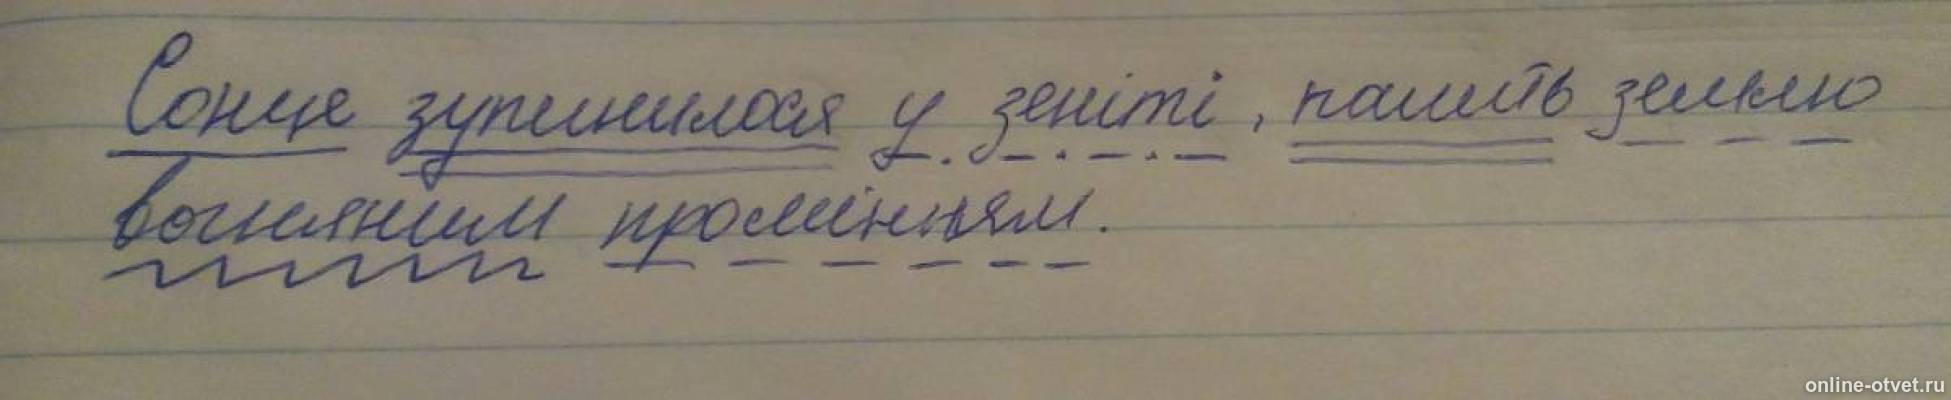 Сонце зупинилося у зеніті, палить землю
вогняним промінням.
online-otvet.ru